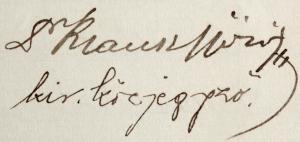 Dr Krausz Móric
kir. közjegyző.